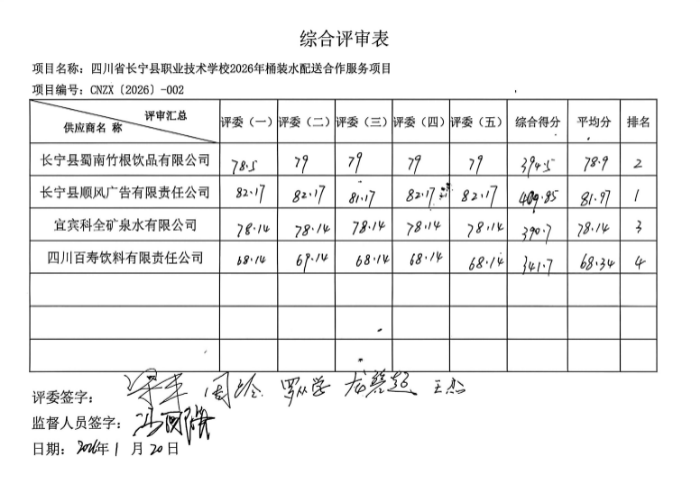 综合评审表
项目名称：四川省长宁县职业技术学校2026年桶装水配送合作服务项目
项目编号：CNZX〔2026〕-002
评审汇总 供应商名 称 评委（一） 评委（二） 评委（三） 评委（四） 评委（五） 综合得分 平均分 排名
长宁县蜀南竹根饮品有限公司 78.5 79 79 79 79 394.5 78.9 2
长宁县顺风广告有限责任公司 82.17 82.17 81.17 82.17 82.17 409.85 81.97 1
宜宾科全矿泉水有限公司 78.14 78.14 78.14 78.14 78.14 390.7 78.14 3
四川百寿饮料有限责任公司 68.14 69.14 68.14 68.14 68.14 341.7 68.34 4
评委签字：
监督人员签字：
日期：2026年1月20日